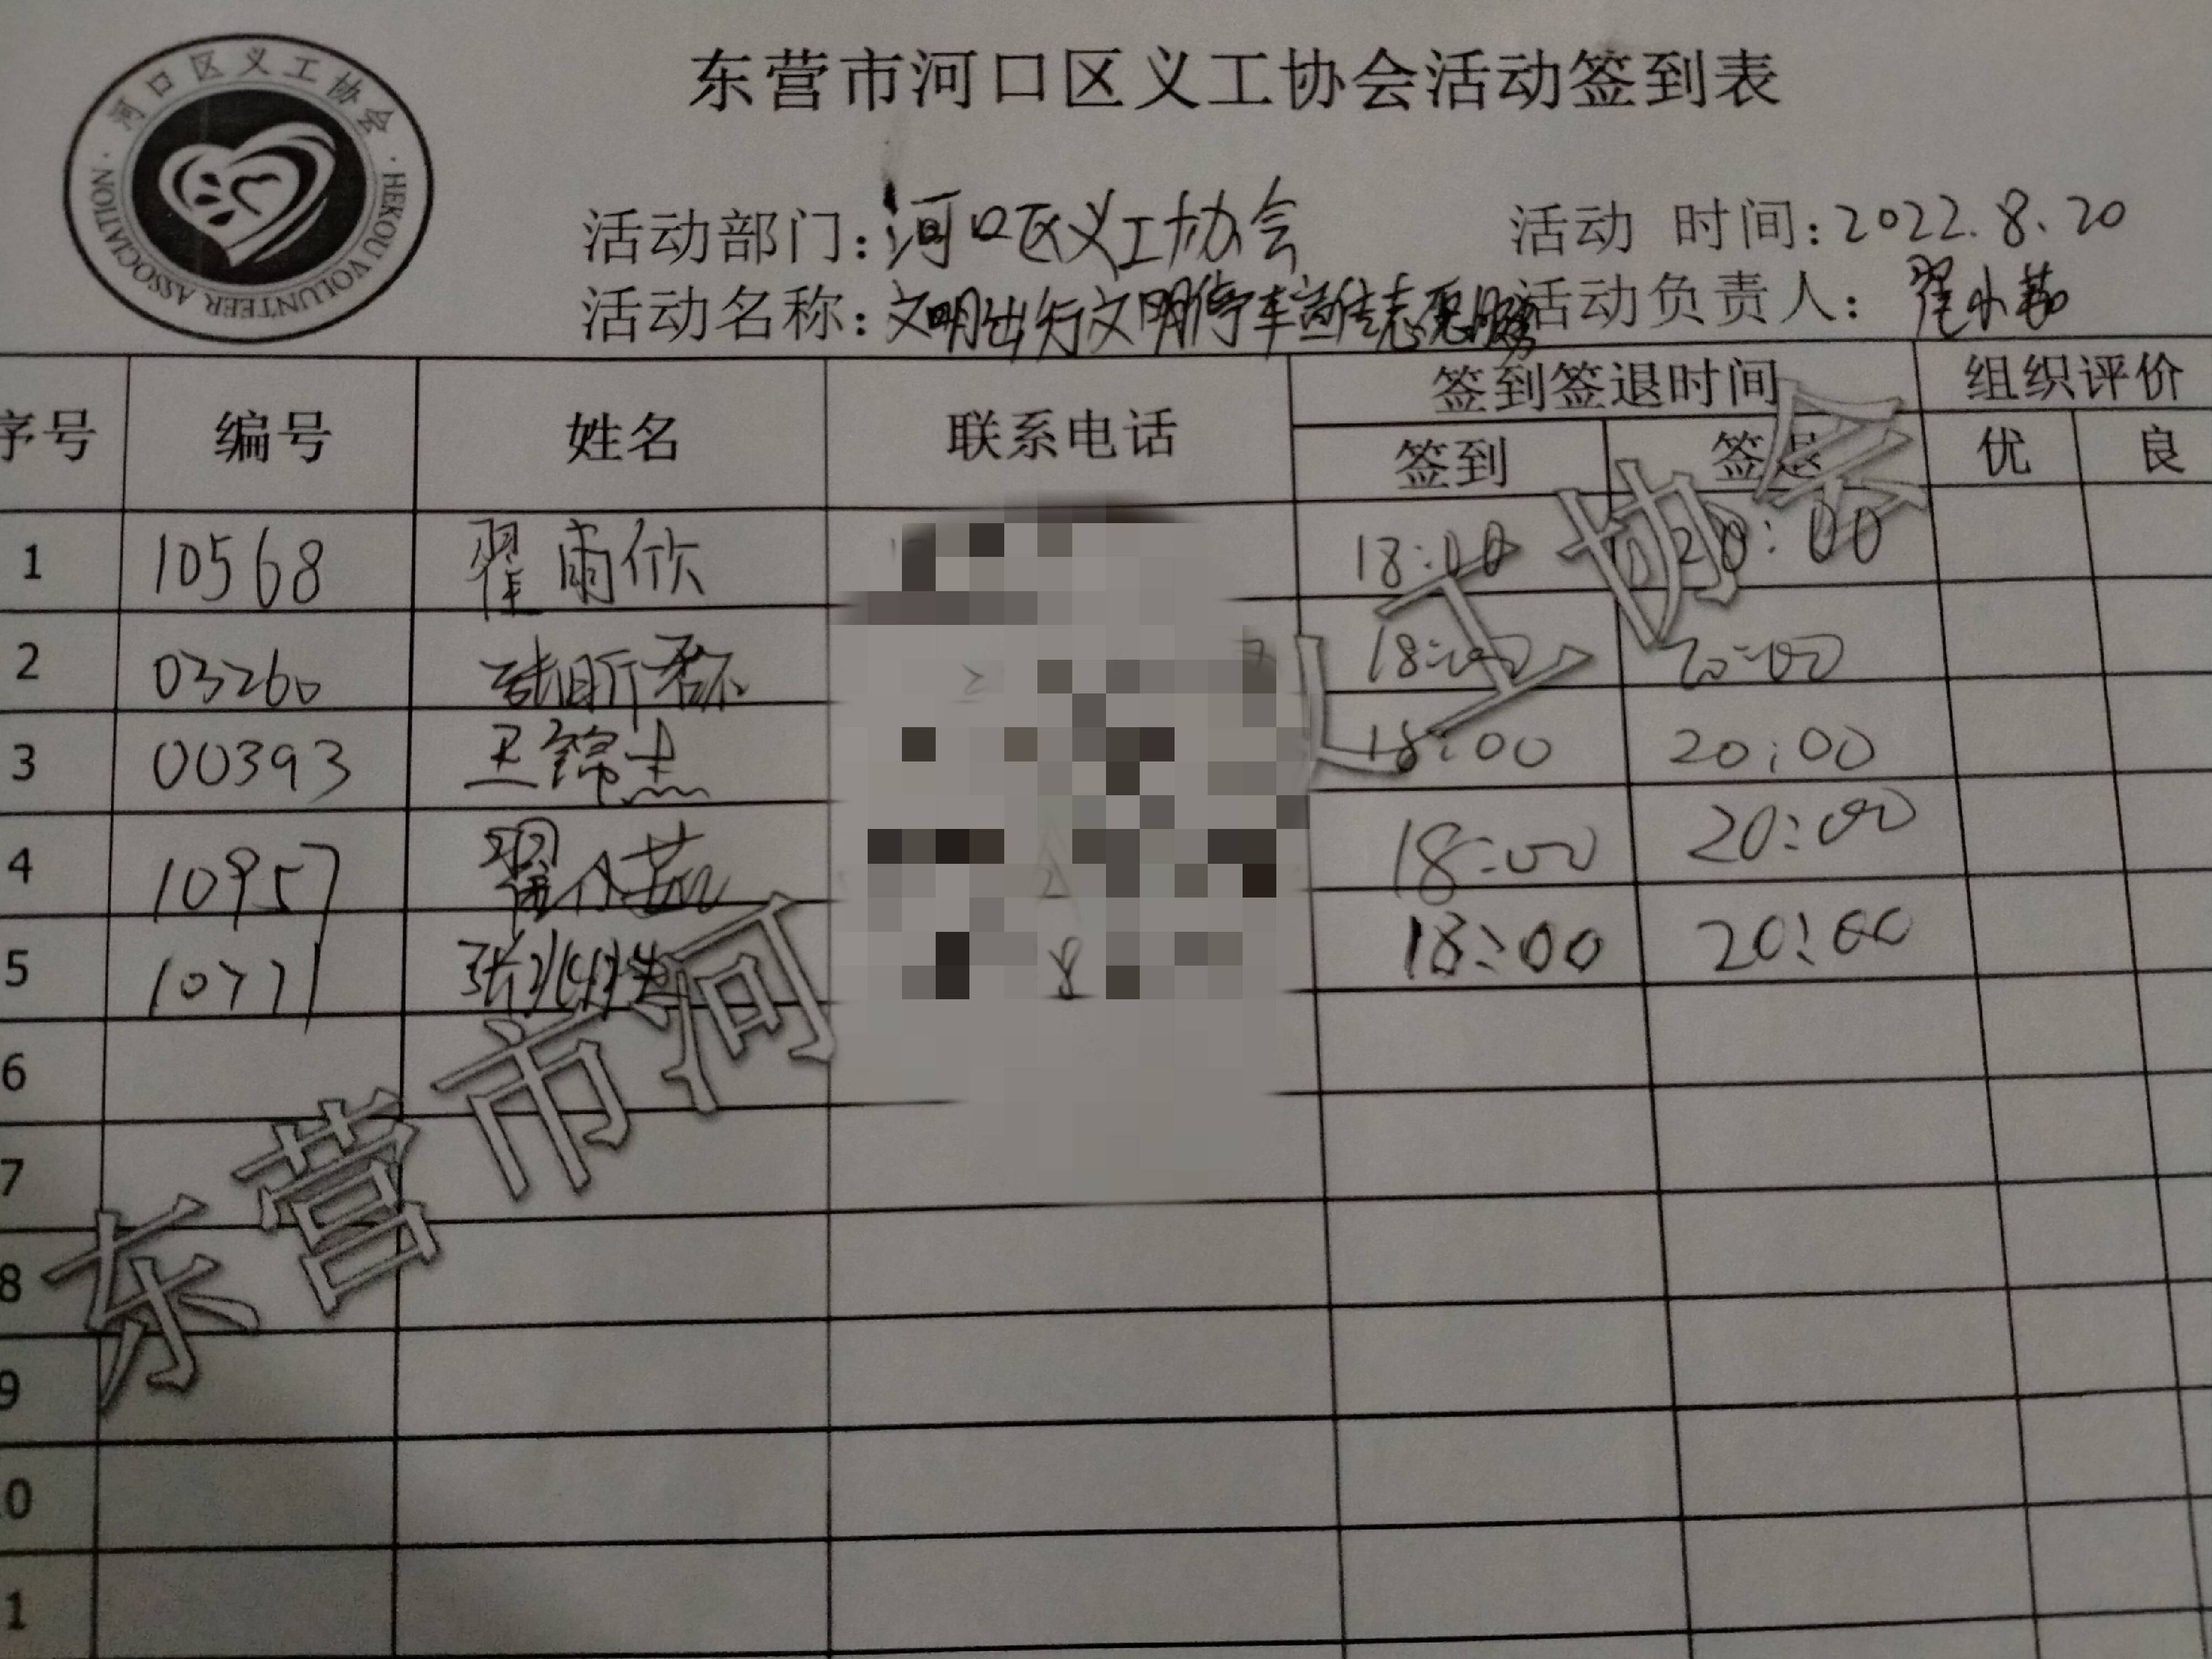 河口区义工协会
HEKOU VOLUNTEER ASSOCIATION
东营市河口区义工协会活动签到表
活动部门：河口区义工协会 活动 时间：2022.8.20
活动名称：文明出行文明停车 志愿服务 活动负责人：翟小茹
序号 编号 姓名 联系电话 签到签退时间 组织评价
签到 签退 优 良
1 10568 翟雨欣 18:00 20:00
2 03260 18:00 20:00
3 00393 王锦杰 18:00 20:00
4 10957 翟小茹 18:00 20:00
5 10771 张 18:00 20:00
6
7
8
9
0
1
东营市河 工协会